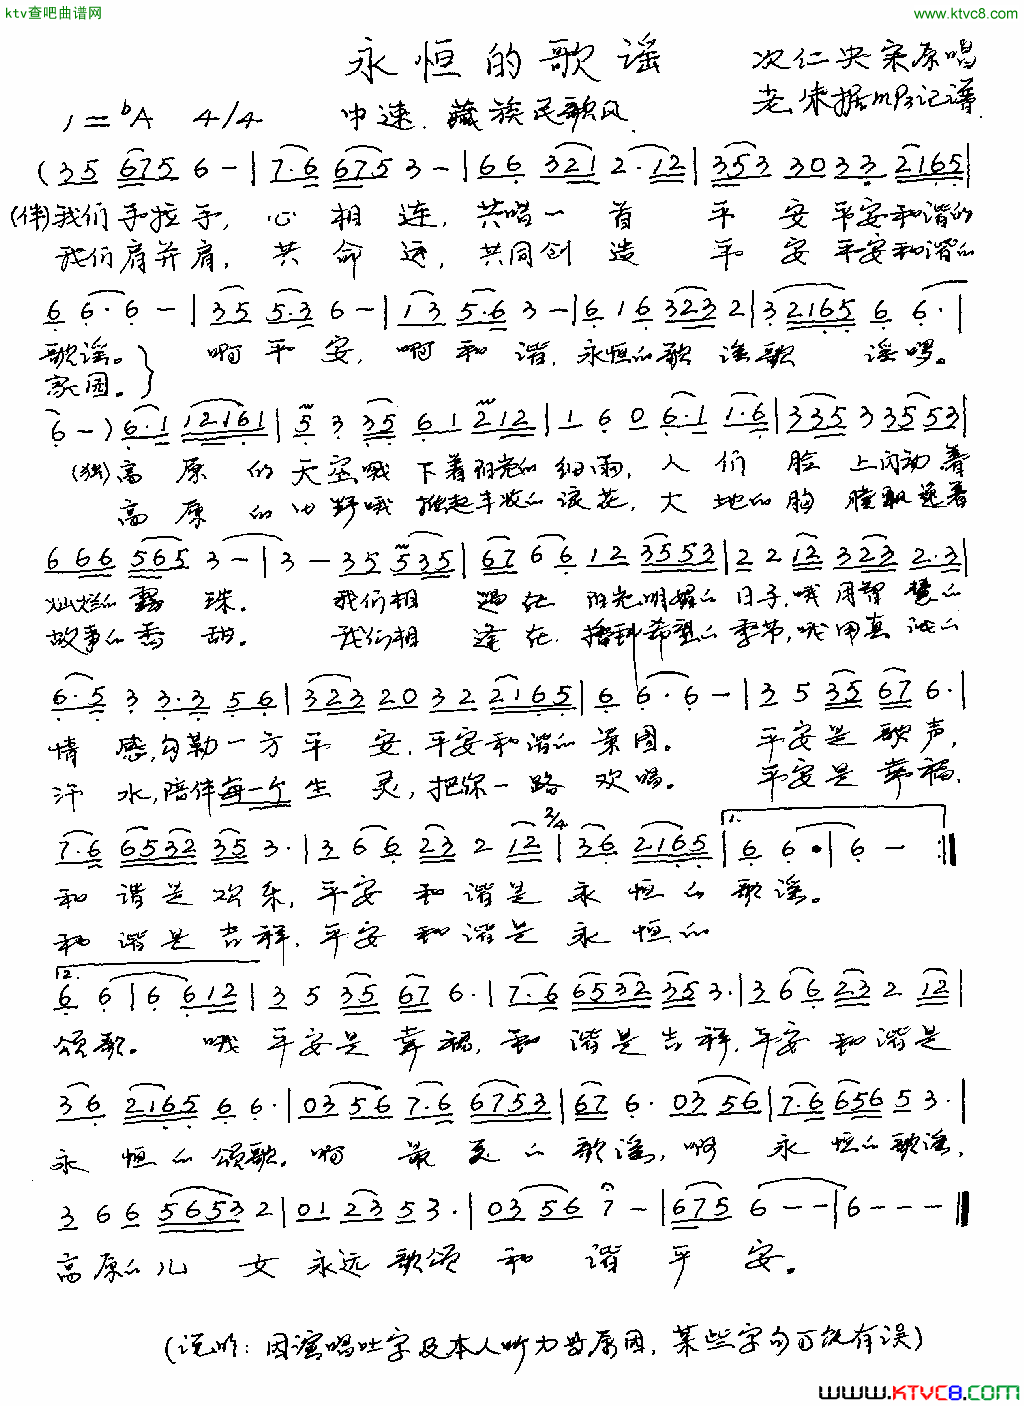 ktv查吧曲谱网
www.ktvc8.com
永恒的歌谣
次仁央宗原唱
老朱据mp3记谱
1=bA 4/4 中速. 藏族民歌风.
(35 6756-|7·6 6753-|66 3212·12|3533033 2165|
(伴)我们手拉手, 心相连, 共唱一首平安平安和谐的
我们肩并肩, 共命运, 共同创造平安平安和谐的
6 6·6-|35 5·36-|13 5·63-|616 3232|32165 6 6·|
歌谣。 啊平安, 啊和谐, 永恒的歌谣歌谣啰。
家园。
6-)6·1 12161|5 3 35 61 212|1 6 0 6·1 1·6|335 3 3553|
(独)高原的天空哦下着阳光的细雨, 人们脸上闪动着
高原的田野哦掀起丰收的浪花, 大地的胸膛飘逸着
666 565 3-|3-35 535|67 66 12 3553|22 12 323 2·3|
灿烂的露珠。 我们相遇在阳光明媚的日子,哦用智慧的
故事的香甜。 我们相逢在播种希望的季节,哦用真诚的
6·5 3 3·3 56|323 20 32 2165|6 6·6-|35 35 67 6·|
情感,勾勒一方平安,平安和谐的乐园。 平安是歌声,
汗水,陪伴每一个生灵,把你一路欢唱。 平安是幸福,
7·6 6532 35 3·|366 23 2 12|2/4 36 2165|1. 6 6·|6-:||
和谐是欢乐,平安和谐是永恒的歌谣。
和谐是吉祥,平安和谐是永恒的
2. 6 6|6 612|35 35 67 6·|7·6 6532 35 3·|366 23 2 12|
颂歌。 哦平安是幸福,和谐是吉祥,平安和谐是
36 2165 6 6·|03 56 7·6 6753|67 6· 03 56|7·6 656 5 3·|
永恒的颂歌。啊最美的歌谣,啊永恒的歌谣,
366 5653 2|01 23 53·|03 56 7-|675 6--|6---||
高原的儿女永远歌颂和谐平安。
(说明:因演唱吐字及本人听力等原因,某些字句可能有误)
www.KTVC8.com